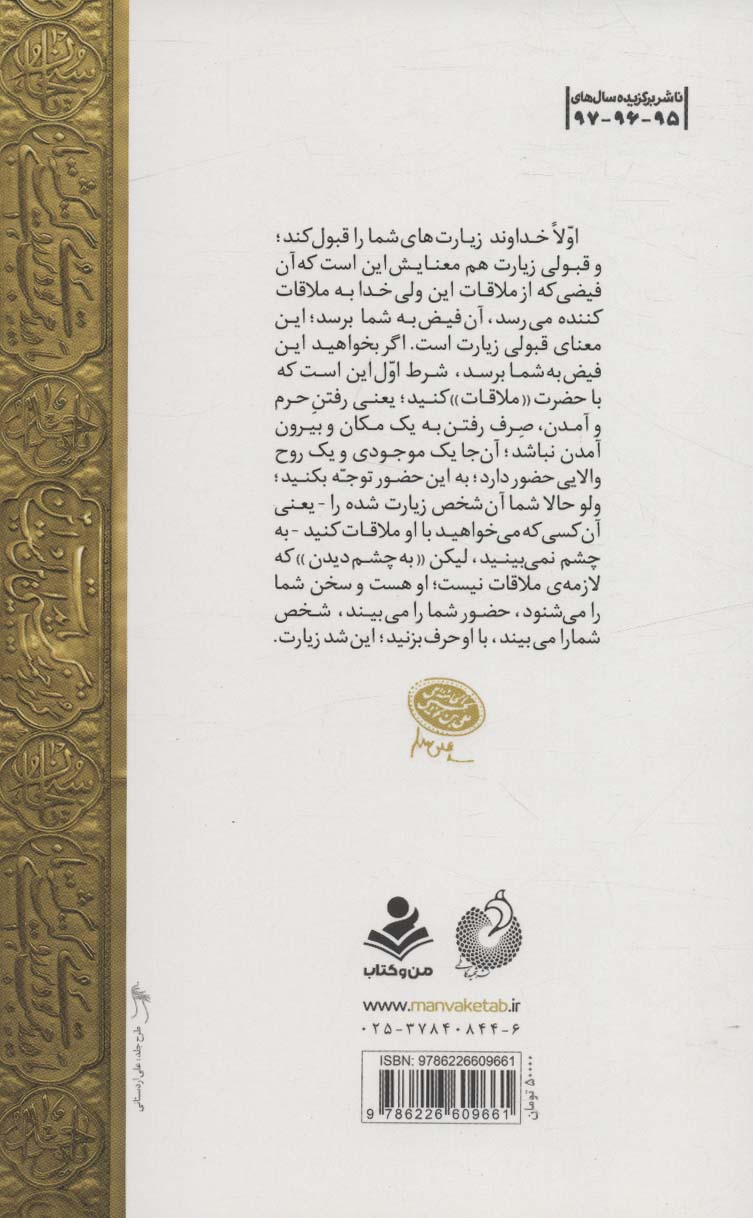 ناشر برگزیده سال‌های
۹۵-۹۶-۹۷
اوّلاً خداوند زیارت‌های شما را قبول کند؛
و قبولی زیارت هم معنایش این است که آن
فیضی که از ملاقات این ولی خدا به ملاقات
کننده می‌رسد، آن فیض به شما برسد؛ این
معنای قبولی زیارت است. اگر بخواهید این
فیض به شما برسد، شرط اوّل این است که
با حضرت «ملاقات» کنید؛ یعنی رفتنِ حرم
و آمدن، صِرف رفتن به یک مکان و بیرون
آمدن نباشد؛ آن‌جا یک موجودی و یک روح
والایی حضور دارد؛ به این حضور توجّه بکنید؛
ولو حالا شما آن شخص زیارت شده را - یعنی
آن کسی که می‌خواهید با او ملاقات کنید - به
چشم نمی‌بینید، لیکن «به چشم دیدن» که
لازمه‌ی ملاقات نیست؛ او هست و سخن شما
را می‌شنود، حضور شما را می‌بیند، شخص
شما را می‌بیند، با او حرف بزنید؛ این شد زیارت.
من و کتاب
www.manvaketab.ir
۰۲۵-۳۷۸۴۰۸۴۴-۶
ISBN: 9786226609661
9 786226 609661
۵۰۰۰۰ تومان
طرح جلد: علی اردستانی